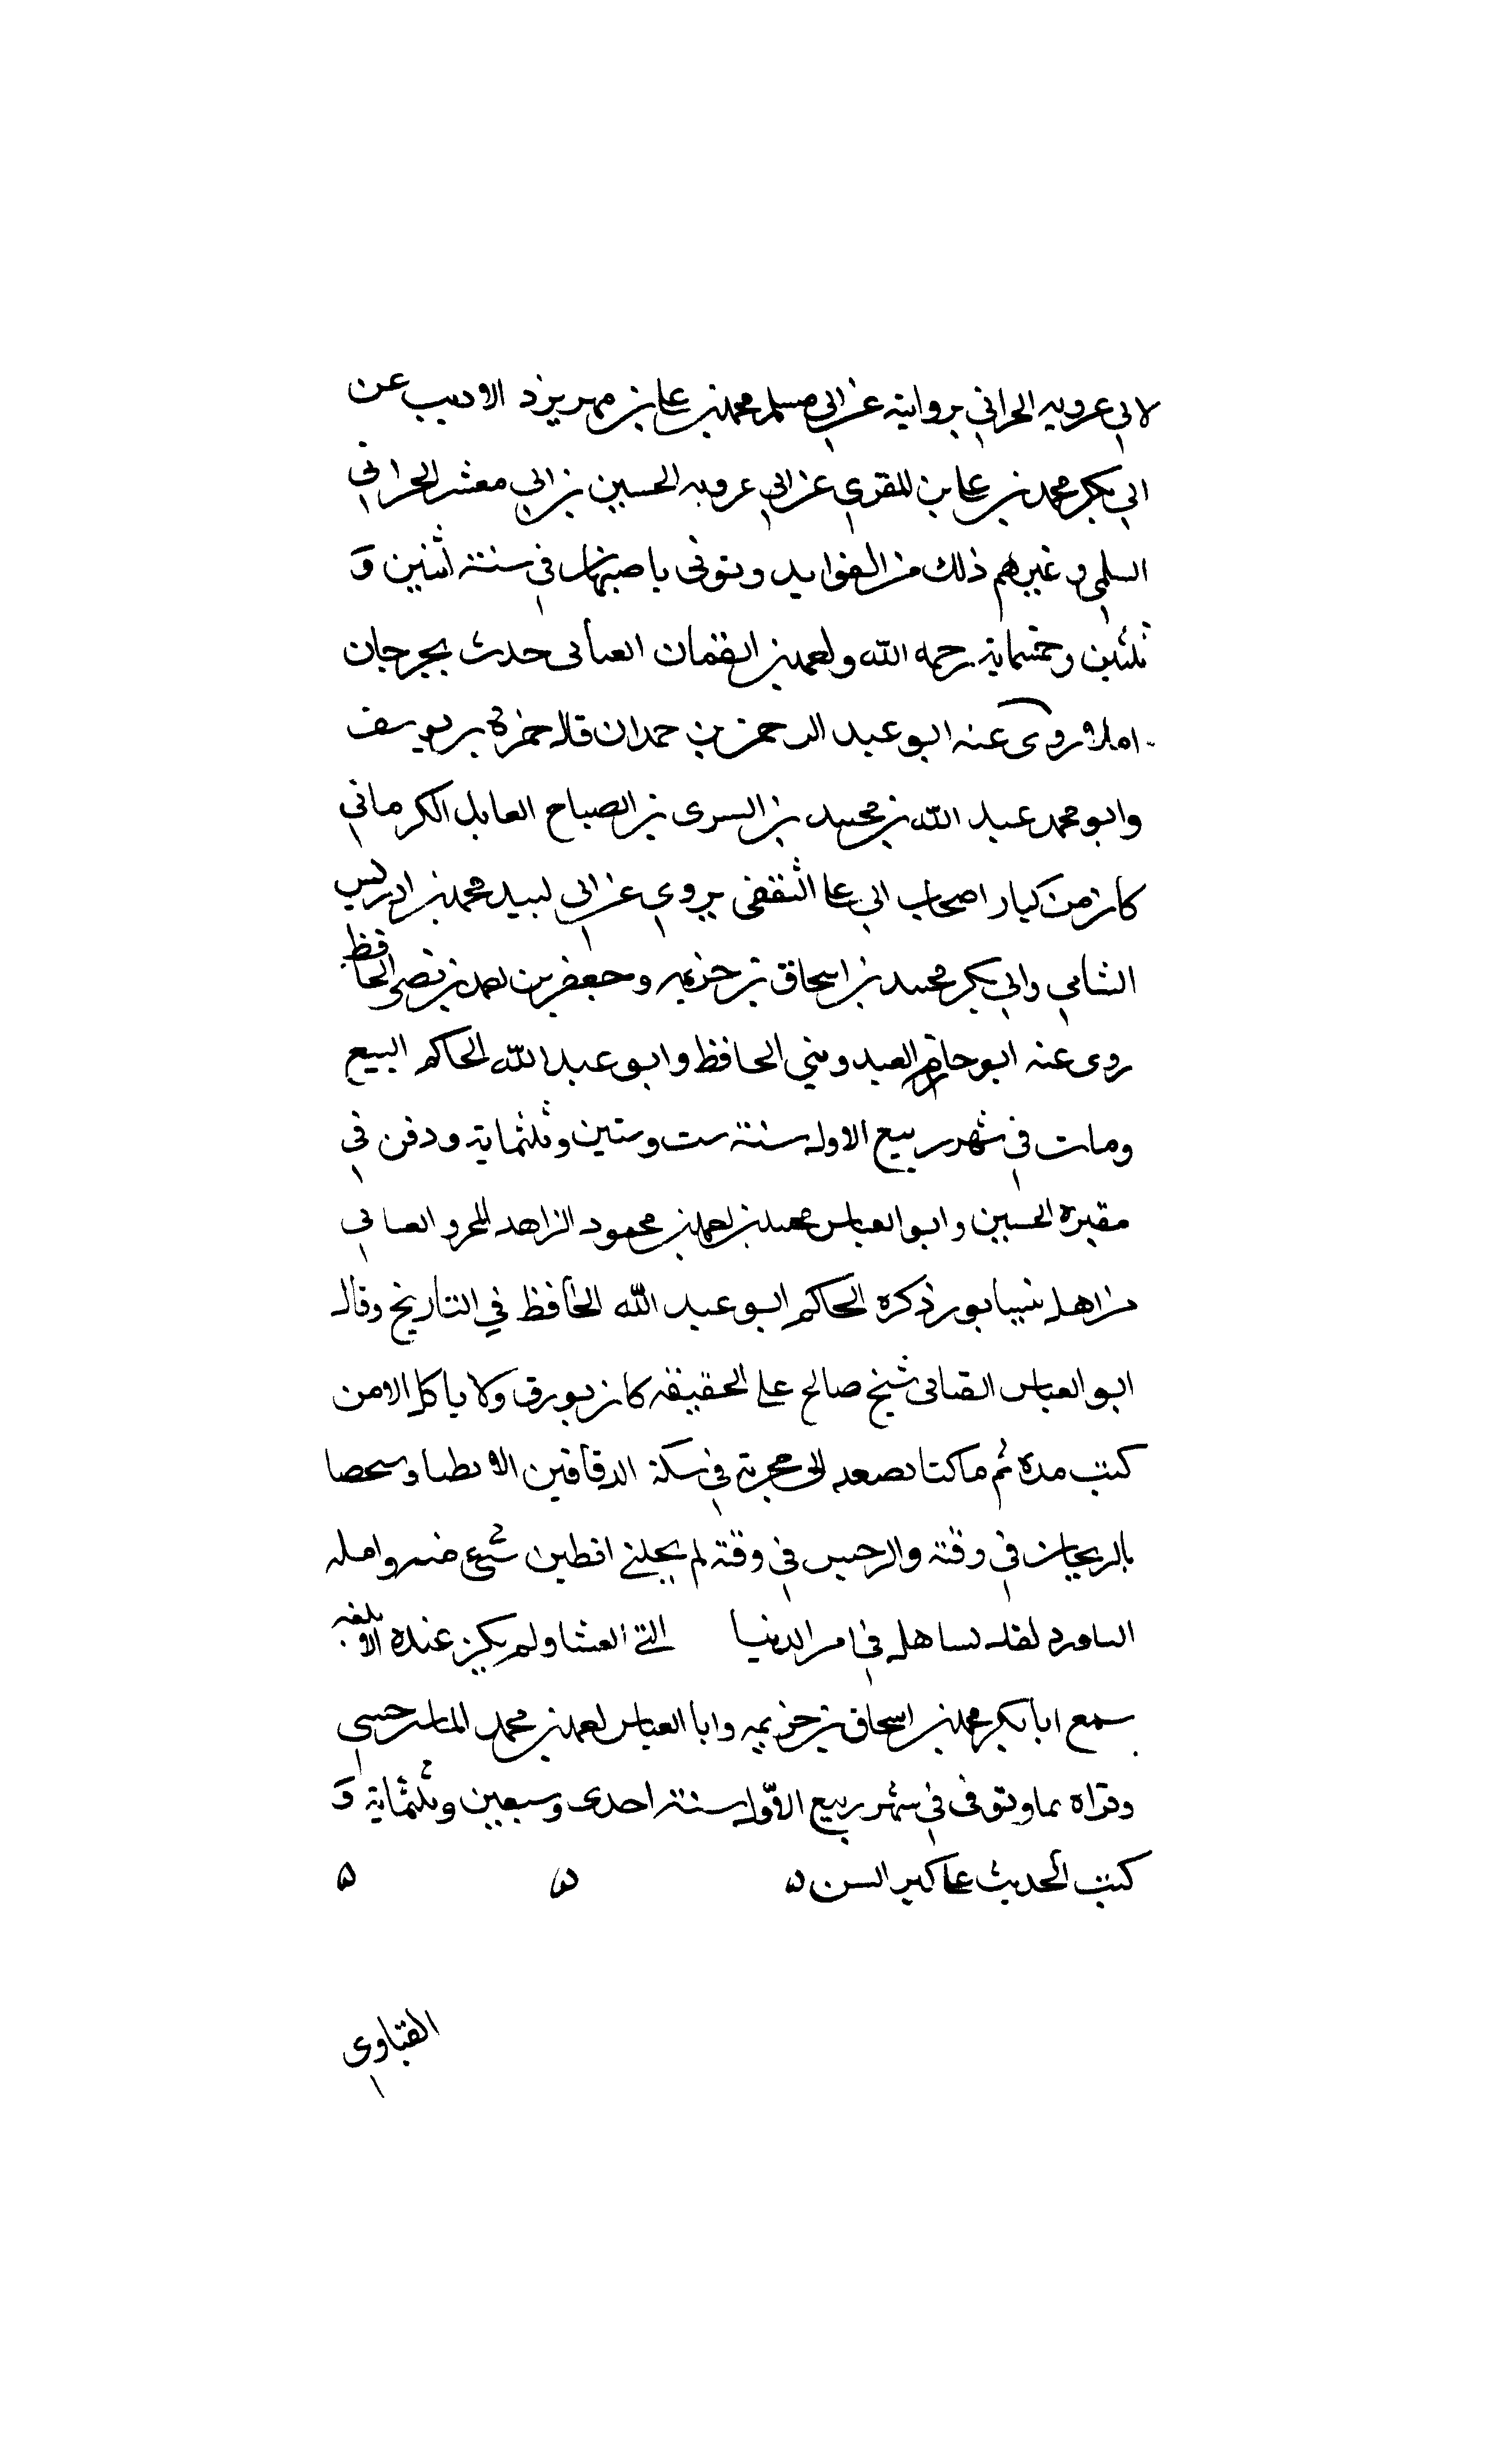 لابي عروبه الحراني بروايته عن ابي مسلم محمد بن علي بن مهريزد الاديب عن
ابي بكر محمد بن علي بن المقرى عن ابي عروبه الحسين بن ابي معشر الحراني
السلمي وغيرهم ذلك من الفوايد وتوفى باصبهان في سنة اثنين وَ
ثلثين وخمسماية رحمه الله واحمد بن لقمان العباىى حدث بجرجان
املا روى عنه ابو عبد الرحمن بن حمدان قاله حمزة بن يوسف
وابو محمد عبد الله بن محمد بن السرى بن الصباح العابد الكرماني
كان من كبار اصحاب ابي علي الثقفى يروي عن ابي لبيد محمد بن ادريس
الشامي وابي بكر محمد بن اسحاق بن خزيمه وجعفر بن احمد بن نصر الحافظ
روى عنه ابو حازم العبدويني الحافظ وابو عبد الله الحاكم البيع
ومات في شهر ربيع الاول سنة ست وستين وثلثماية ودفن في
مقبرة الحسين وابو العباس محمد بن احمد بن محمود الزاهد
من اهل نيسابور ذكره الحاكم ابو عبد الله الحافظ في التاريخ وقال
ابو العباس القبانى شيخ صالح على الحقيقه كان يورق ولا ياكل الا من
كتب مدة ثم ما كنا نصعد الى حجرته في سكة الدقاقين الا
بالريحان في وقته والنرجس في وقته لم يخلنے شيء
لقله تساهله في امر الدنيا التي العشا ولم يكن عنده
سمع ابا بكر محمد بن اسحاق بن خزيمه وابا العباس احمد بن محمد الماسرجسي
وتوفى في شهر ربيع الاوّل سنة احدى وسبعين وثلثماية وَ
كتب الحديث على كبر السن ه ه ه
القباوي